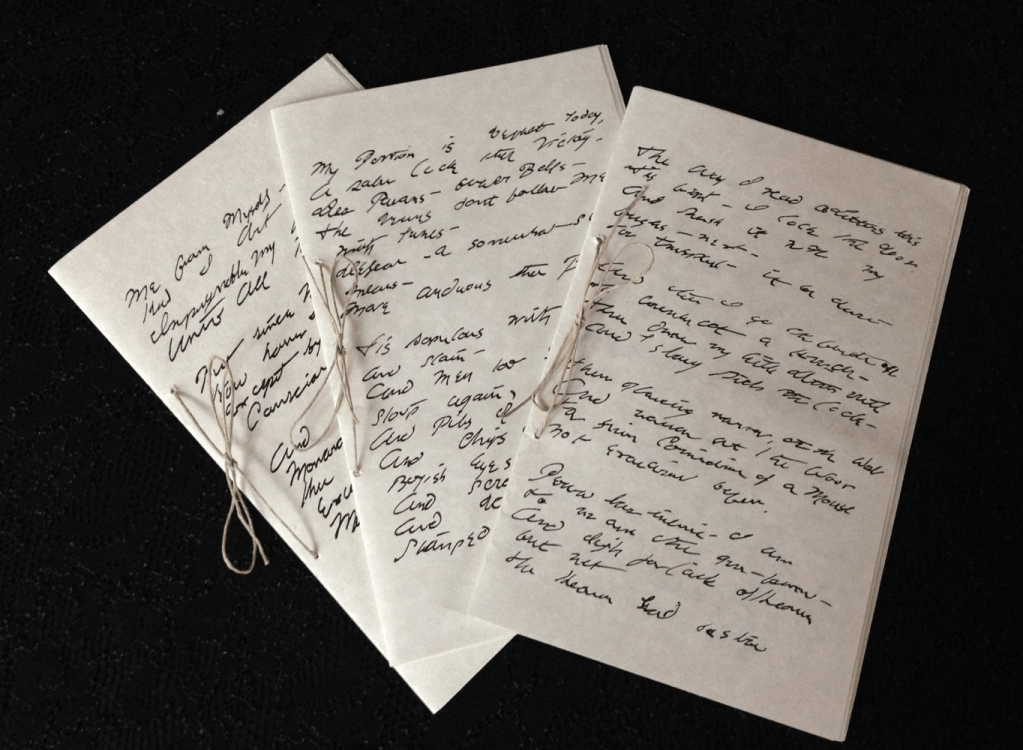 Me from Myself –
had I Art
Impregnable my
Unto All
But since M
How have I
except by
Conscious
And
Monarch
How
Me
My Portion is Defeat today,
A paler luck than Victory –
Less Paeans – fewer Bells –
the Drums dont follow Me
with tunes –
Defeat – a somewhat s
means –
More arduous than
Tis populous with
And stain –
And Men too
Stoop again,
And Piles
And Chips
Boyish Eyes
And scra
And de
Stamped
The way I read a letter's this
'tis first – I lock the door
And push it with my
fingers – next –
for transport – it be sure –
And then I go the furthest off
counteract a knock –
then draw my little letter forth
And slowly pick the lock –
then glancing narrow, at the Wall
And narrow at the floor
For firm Conviction of a Mouse
Not exorcised before.
Peruse how infinite I am
To no one that you – know –
And sigh for lack of Heaven
but not
the Heaven God bestow